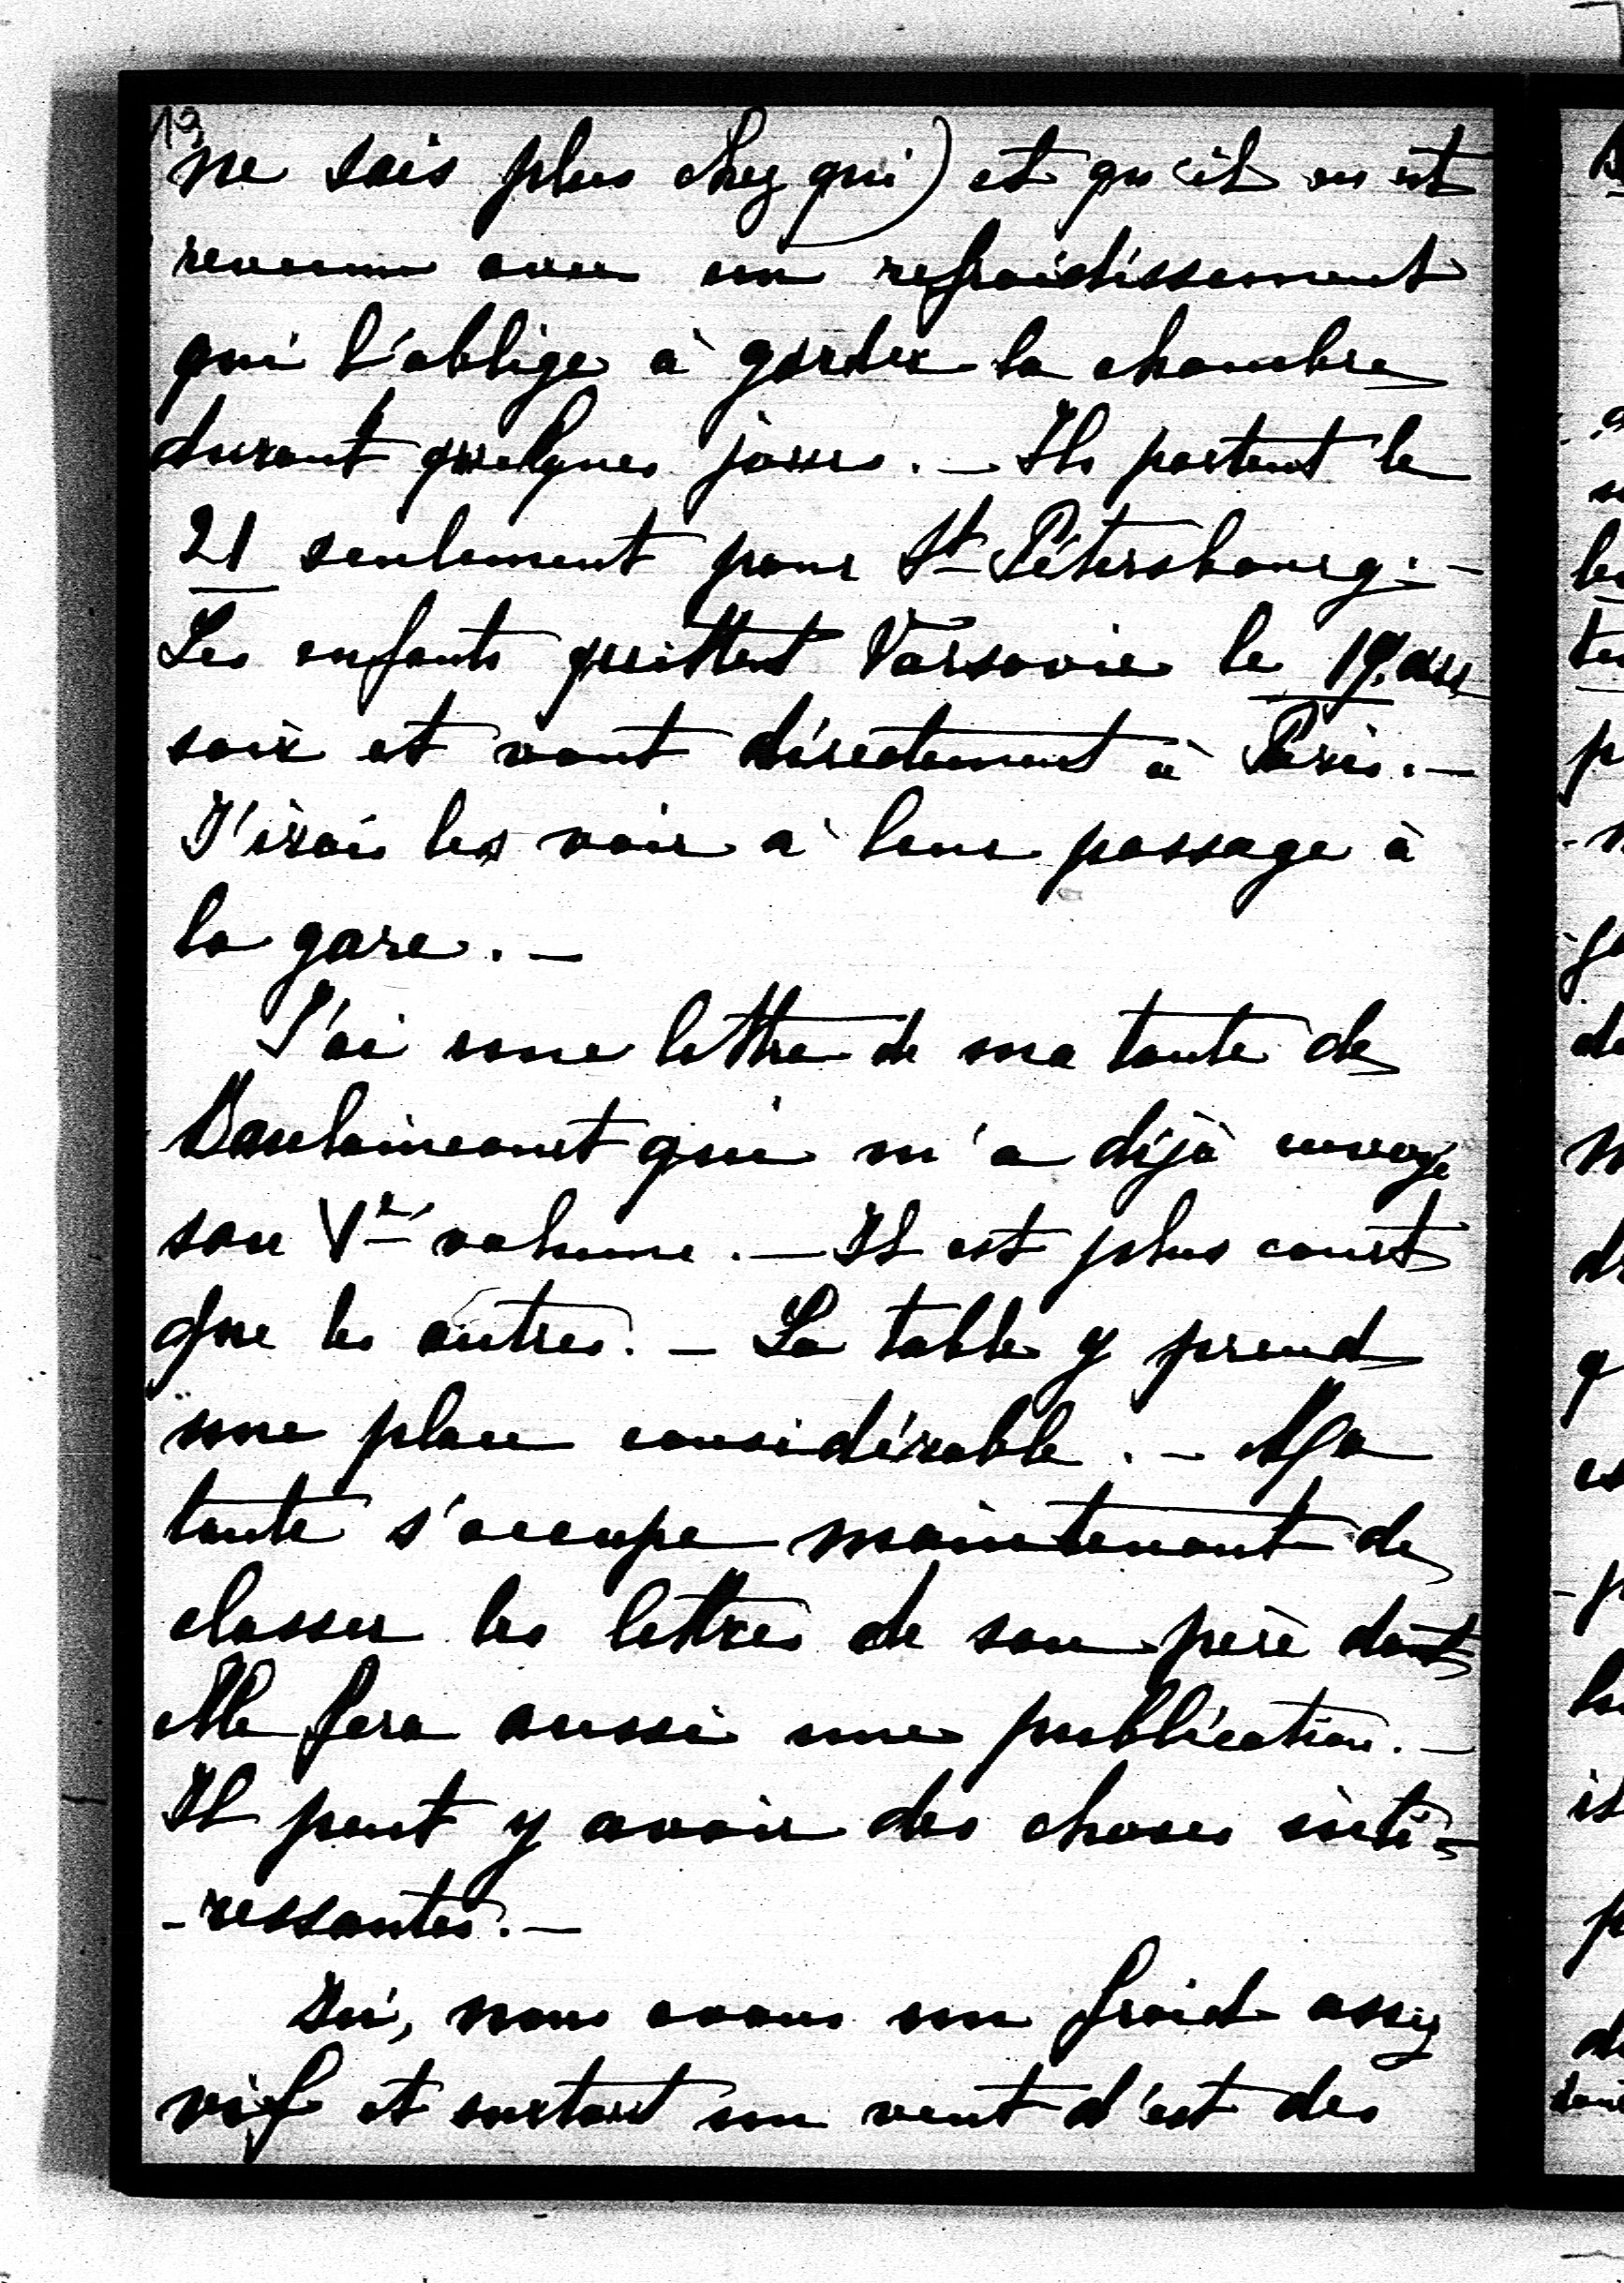 19
ne sais plus chez qui) et qu'il en est
revenu avec un refroidissement
qui l'oblige à garder la chambre
durant quelques jours. — Ils partent le
21 seulement pour St Pétersbourg. —
Les enfants quittent Varsovie le 19. au
soir et vont directement à Paris. —
J'irai les voir à leur passage à
la gare. —
J'ai une lettre de ma tante de
qui m'a déjà envoyé
son Ve volume. — Il est plus court
que les autres. — La table y prend
une place considérable. — Ma
tante s'occupe maintenant de
classer les lettres de son père dont
elle fera aussi une publication. —
Il peut y avoir des choses inté-
-ressantes. —
Ici, nous avons un froid assez
vif et surtout un vent d'est des